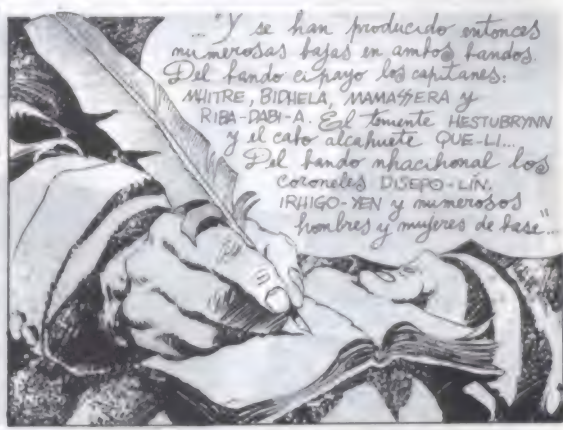 ..."Y se han producido entonces
numerosas bajas en ambos bandos.
Del bando cipayo los capitanes:
MHITRE, BIDHELA, MAMASSERA y
RIBA-DABI-A. El teniente HESTUBRYNN
y el cabo alcahuete QUE-LI...
Del bando nhacihonal los
coroneles DISEPO-LÍN,
IRHIGO-YEN y numerosos
hombres y mujeres de base"...